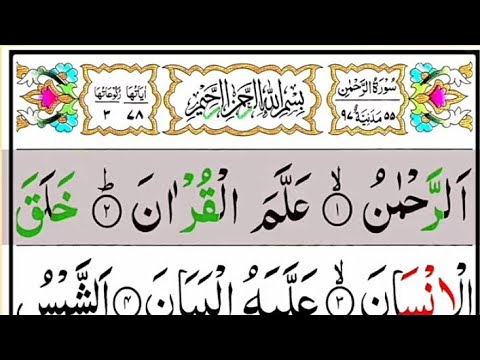 سُوْرَةُ الرَّحْمٰنِ
٥٥ مَدَنِيَّةٌ ٩٧
بِسْمِ اللّٰهِ الرَّحْمٰنِ الرَّحِيْمِ
اٰيَاتُهَا ٧٨ رُكُوْعَاتُهَا ٣
اَلرَّحْمٰنُ ۙ ﴿١﴾ عَلَّمَ الْقُرْاٰنَ ؕ ﴿٢﴾ خَلَقَ
الْاِنْسَانَ ۙ ﴿٣﴾ عَلَّمَهُ الْبَيَانَ ﴿٤﴾ اَلشَّمْسُ